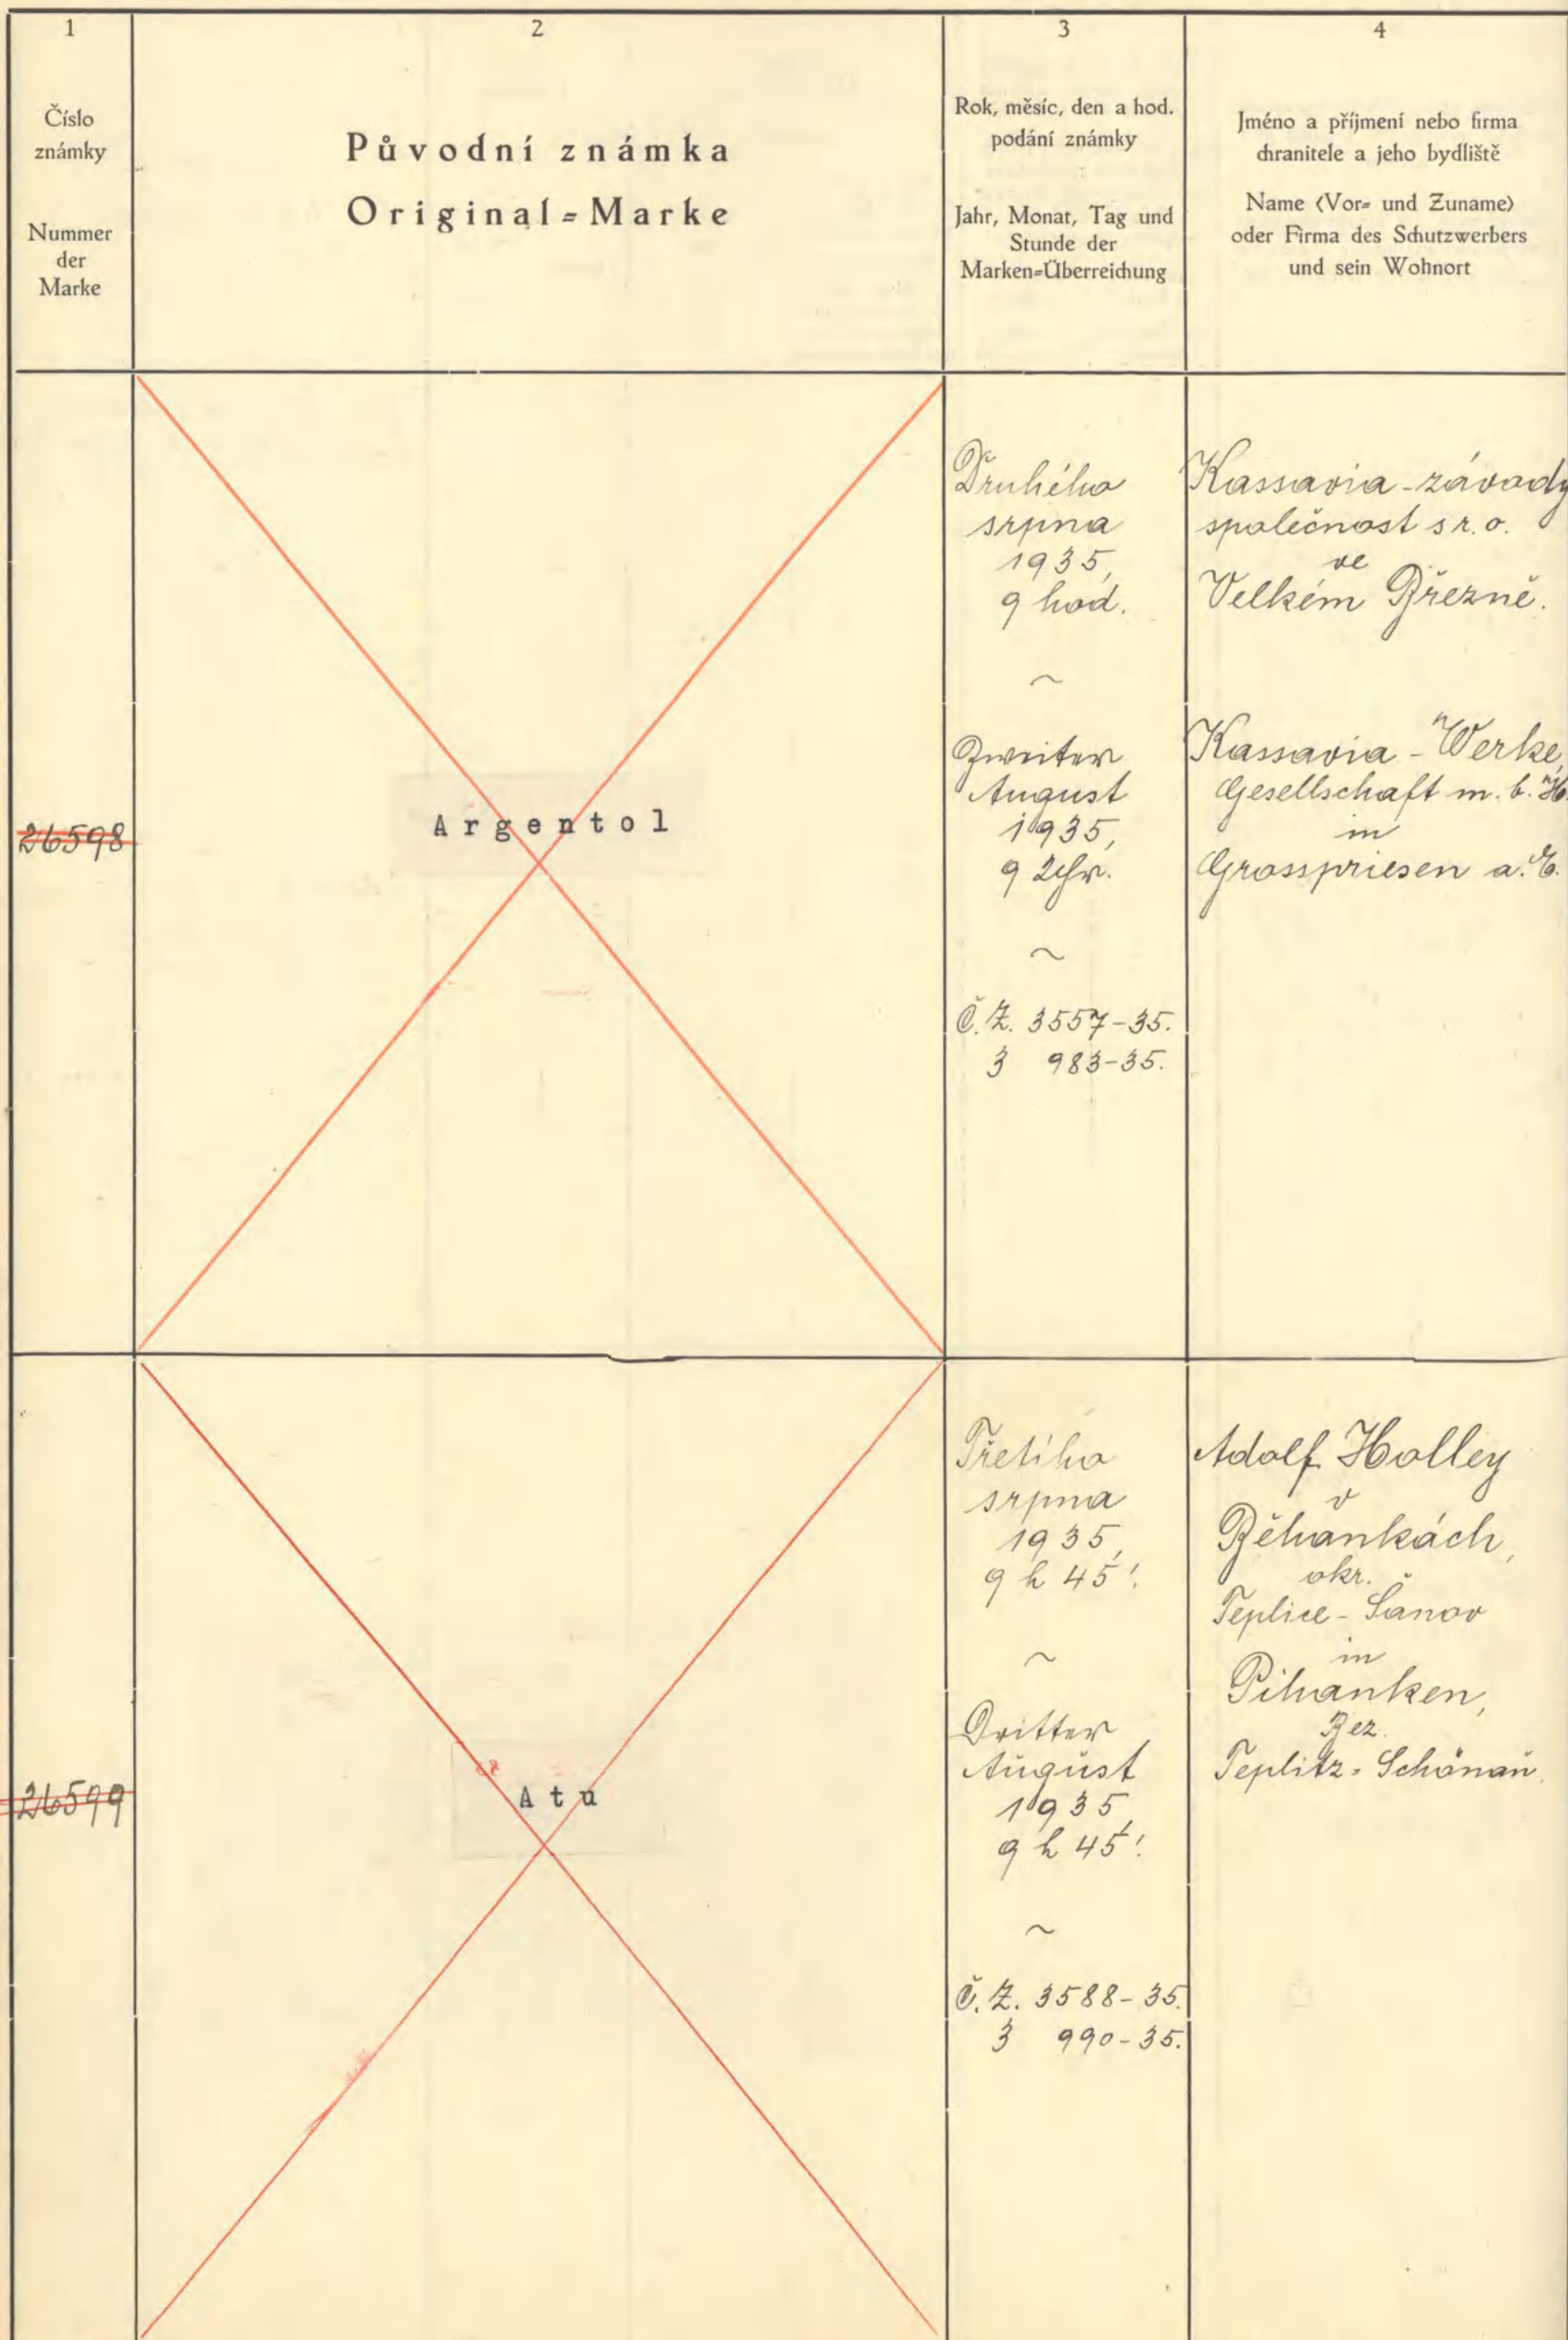 1
2
3
4
Číslo
známky
Nummer
der
Marke
Původní známka
Original=Marke
Rok, měsíc, den a hod.
podání známky
Jahr, Monat, Tag und
Stunde der
Marken=Überreichung
Jméno a příjmení nebo firma
chranitele a jeho bydliště
Name (Vor= und Zuname)
oder Firma des Schutzwerbers
und sein Wohnort
26598
Argentol
Druhého
srpna
1935,
9 hod.
~
Zweiter
August
1935,
9 Uhr.
~
Č.Z. 3557-35.
3 983-35.
Kassavia-závody
společnost s r. o.
ve
Velkém Březně.
Kassavia-Werke,
Gesellschaft m. b. H.
in
Grosspriesen a. E.
26599
Atu
Třetího
srpna
1935,
9 h 45'.
~
Dritter
August
1935,
9 h 45'.
~
Č.Z. 3588-35.
3 990-35.
Adolf Holley
v
Běhánkách,
okr.
Teplice-Šanov
in
Pihanken,
Bez.
Teplitz-Schönau.